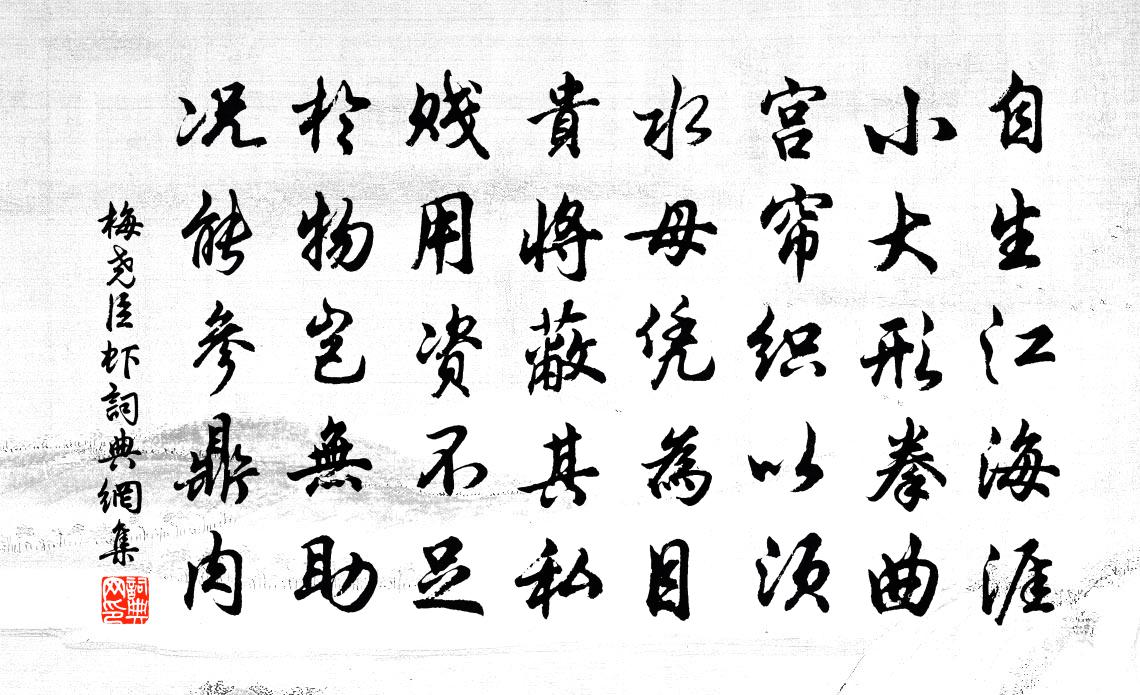 自生江海涯
小大形拳曲
宫帘织以须
水母凭為目
貴將蔽其私
贱用资不足
於物岂無助
况能參鼎肉
梅尧臣虾詞典網集
詞典網印